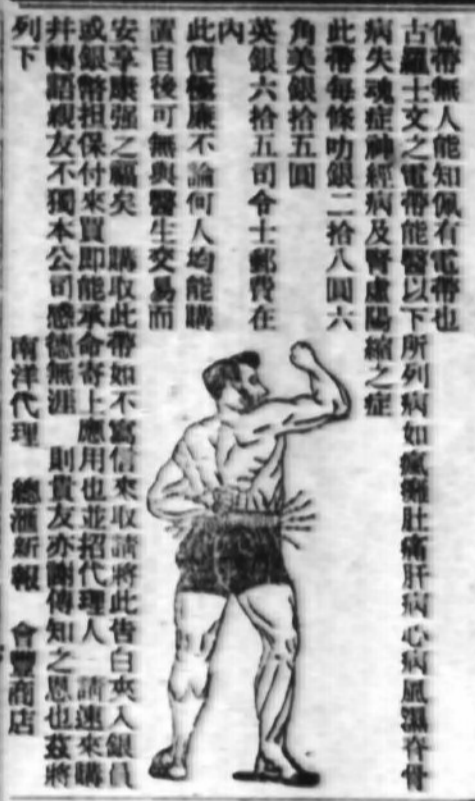 佩帶無人能知佩有電帶也
古羅士文之電帶能醫以下所列病如瘋癱肚痛肝病心病風濕脊骨
病失魂症神經病及腎虛陽縮之症
此帶每條叻銀二拾八圓六
角美銀拾五圓
英銀六拾五司令士郵費在
內
此價極廉不論何人均能購
置自後可無與醫生交易而
安享康强之福矣 購取此帶如不寫信來取請將此告白夾入銀員
或銀幣担保付來買即能承命寄上應用也並招代理人 請速來購
并轉語親友不獨本公司感德無涯 則貴友亦謝傳知之恩也茲將
列下
南洋代理 總滙新報 會豐商店